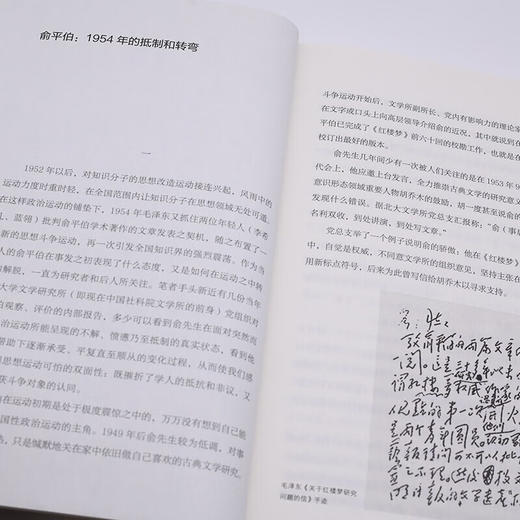 俞平伯：1954 年的抵制和转弯
一
1952 年以后，对知识分子的思想改造运动接连兴起，风雨中的
运动力度时重时轻，在全国范围内让知识分子在思想领域无处可遁。
在这样政治运动的铺垫下，1954 年毛泽东又抓住两位年轻人（李希
凡、蓝翎）批判俞平伯学术著作的文章发表之契机，随之布置了一
新的思想斗争运动，再一次引发全国知识界的强烈震荡。作为当
人的俞平伯在事发之初表现了什么态度，又是如何在运动之中转
的解脱，一直为研究者和后人所关注。笔者手头新近有几份当年
大学文学研究所（即现在中国社科院文学所的前身）党组织对
伯观察、评价的内部报告，多少可以看到俞先生在面对突然而
治运动所能呈现的不解、愤懑乃至抵制的真实状态，看到他
帮助下逐渐承受、平复直至顺从的变化过程，从而使我们感
思想运动可怕的双面性：既撕折了学人的抵抗和非议，又
获斗争对象的认同。
伯在运动初期是处于极度震惊之中的，万万没有想到自己能
国性政治运动的主角。1949 年后俞先生较为低调，对事
，只是缄默地关在家中依旧做自己喜欢的古典文学研究。
斗争运动开始后，文学所副所长、党内有影响力的理论家
在文字或口头上向高层领导介绍俞的近况，其中就说到在
平伯已完成了《红楼梦》前六十回的校勘工作，也就是在
校订出最好的版本。
俞先生几年间少有一次被人们关注的是在 1953 年 9
代会上，他应邀上台发言，全力推崇古典文学的研究意义
意识形态领域重要人物胡乔木的鼓励，胡一度甚至说俞的
发现什么错误。据北大文学所党总支汇报称：“俞（事后
名利双收，到处讲演，到处写文章。”
党总支举了一个例子说明俞的骄傲：他在《
中，自是权威，不同意文学所的组织意见，坚持主张在
用新标点符号，后来为此曾写信给胡乔木以寻求支持。
毛泽东《关于红楼梦研究
问题的信》手迹